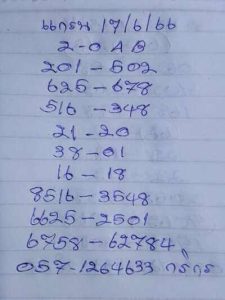 17/6/66
2-0 AB
201-502
625-678
516-348
21-20
38-01
16-18
8516-3548
6625-2501
6758-62784
057-1264633